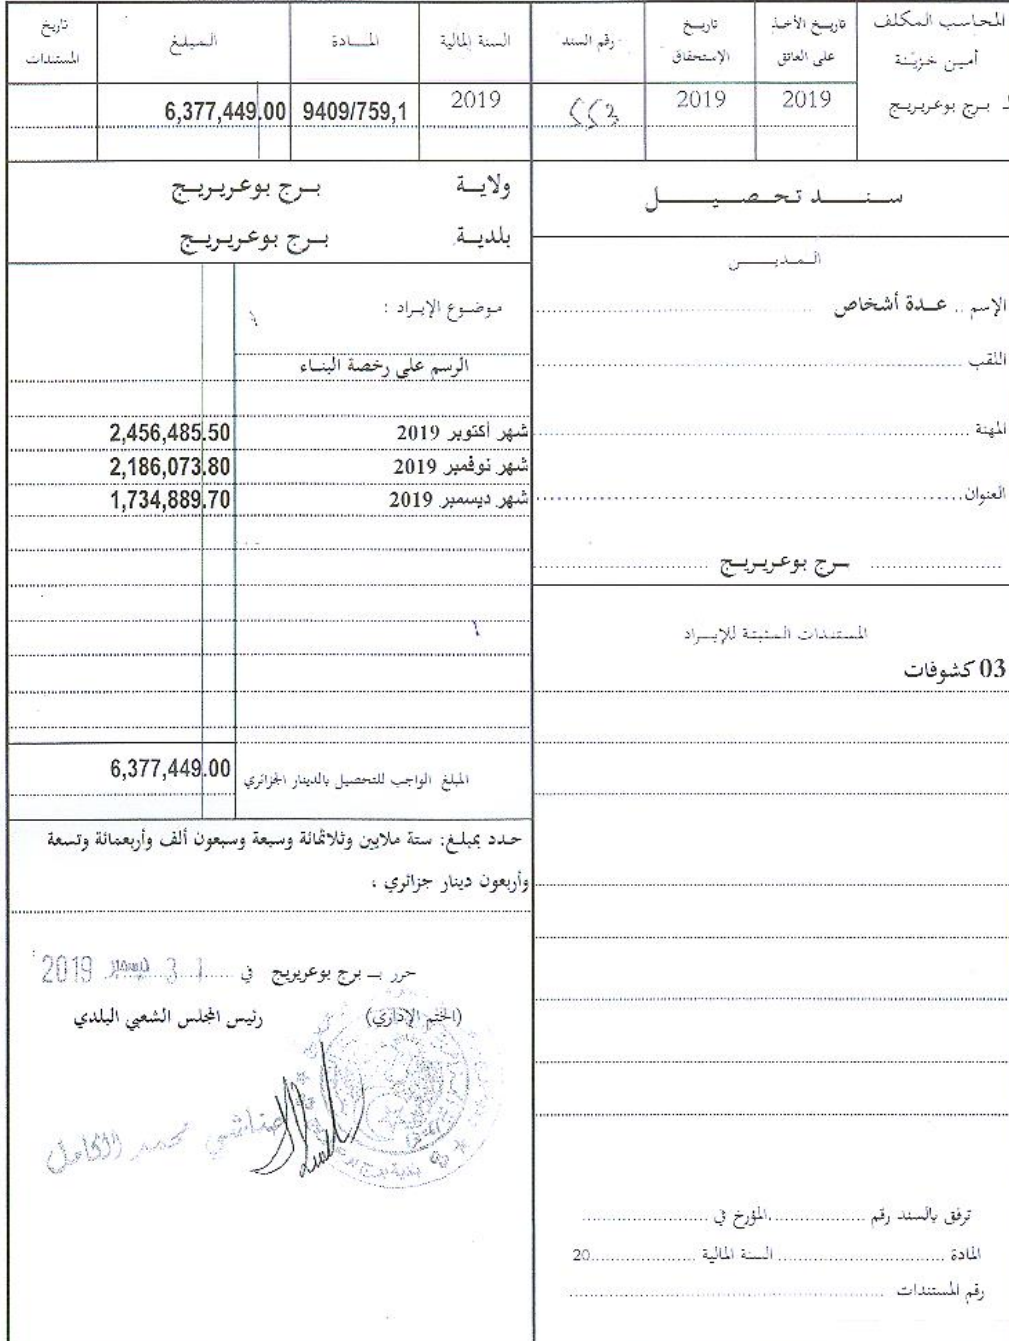 المحاسب المكلف
أمين خزينة
لـ برج بوعريريج
تاريخ الأخذ على العاتق
2019
تاريخ الإستحقاق
2019
رقم السند
السنة المالية
2019
المــادة
9409/759,1
المبلغ
6,377,449.00
تاريخ المستندات
سـنــــد تـحـصـيـــــل
المـديــــن
الإسم .. عــدة أشخاص
اللقب
المهنة
العنوان
بـرج بوعريريـج
المستندات المثبتة للإيـراد
03 كشوفات
ترفق بالسند رقم ..................المؤرخ في
المادة .................. السنة المالية ..................20
رقم المستندات
ولايـة برج بوعريريج
بلديـة برج بوعريريج
موضوع الإيـراد :
الرسم على رخصة البنـاء
شهر أكتوبر 2019 2,456,485.50
شهر نوفمبر 2019 2,186,073.80
شهر ديسمبر 2019 1,734,889.70
المبلغ الواجب للتحصيل بالدينار الجزائري 6,377,449.00
حـدد بمبلـغ: ستة ملايين وثلاثمائة وسبعة وسبعون ألف وأربعمائة وتسعة
وأربعون دينار جزائري ،
حرر بــ برج بوعريريج في 31 ديسمبر 2019
(الختم الإداري) رئيس المجلس الشعبي البلدي
محمد الكامل